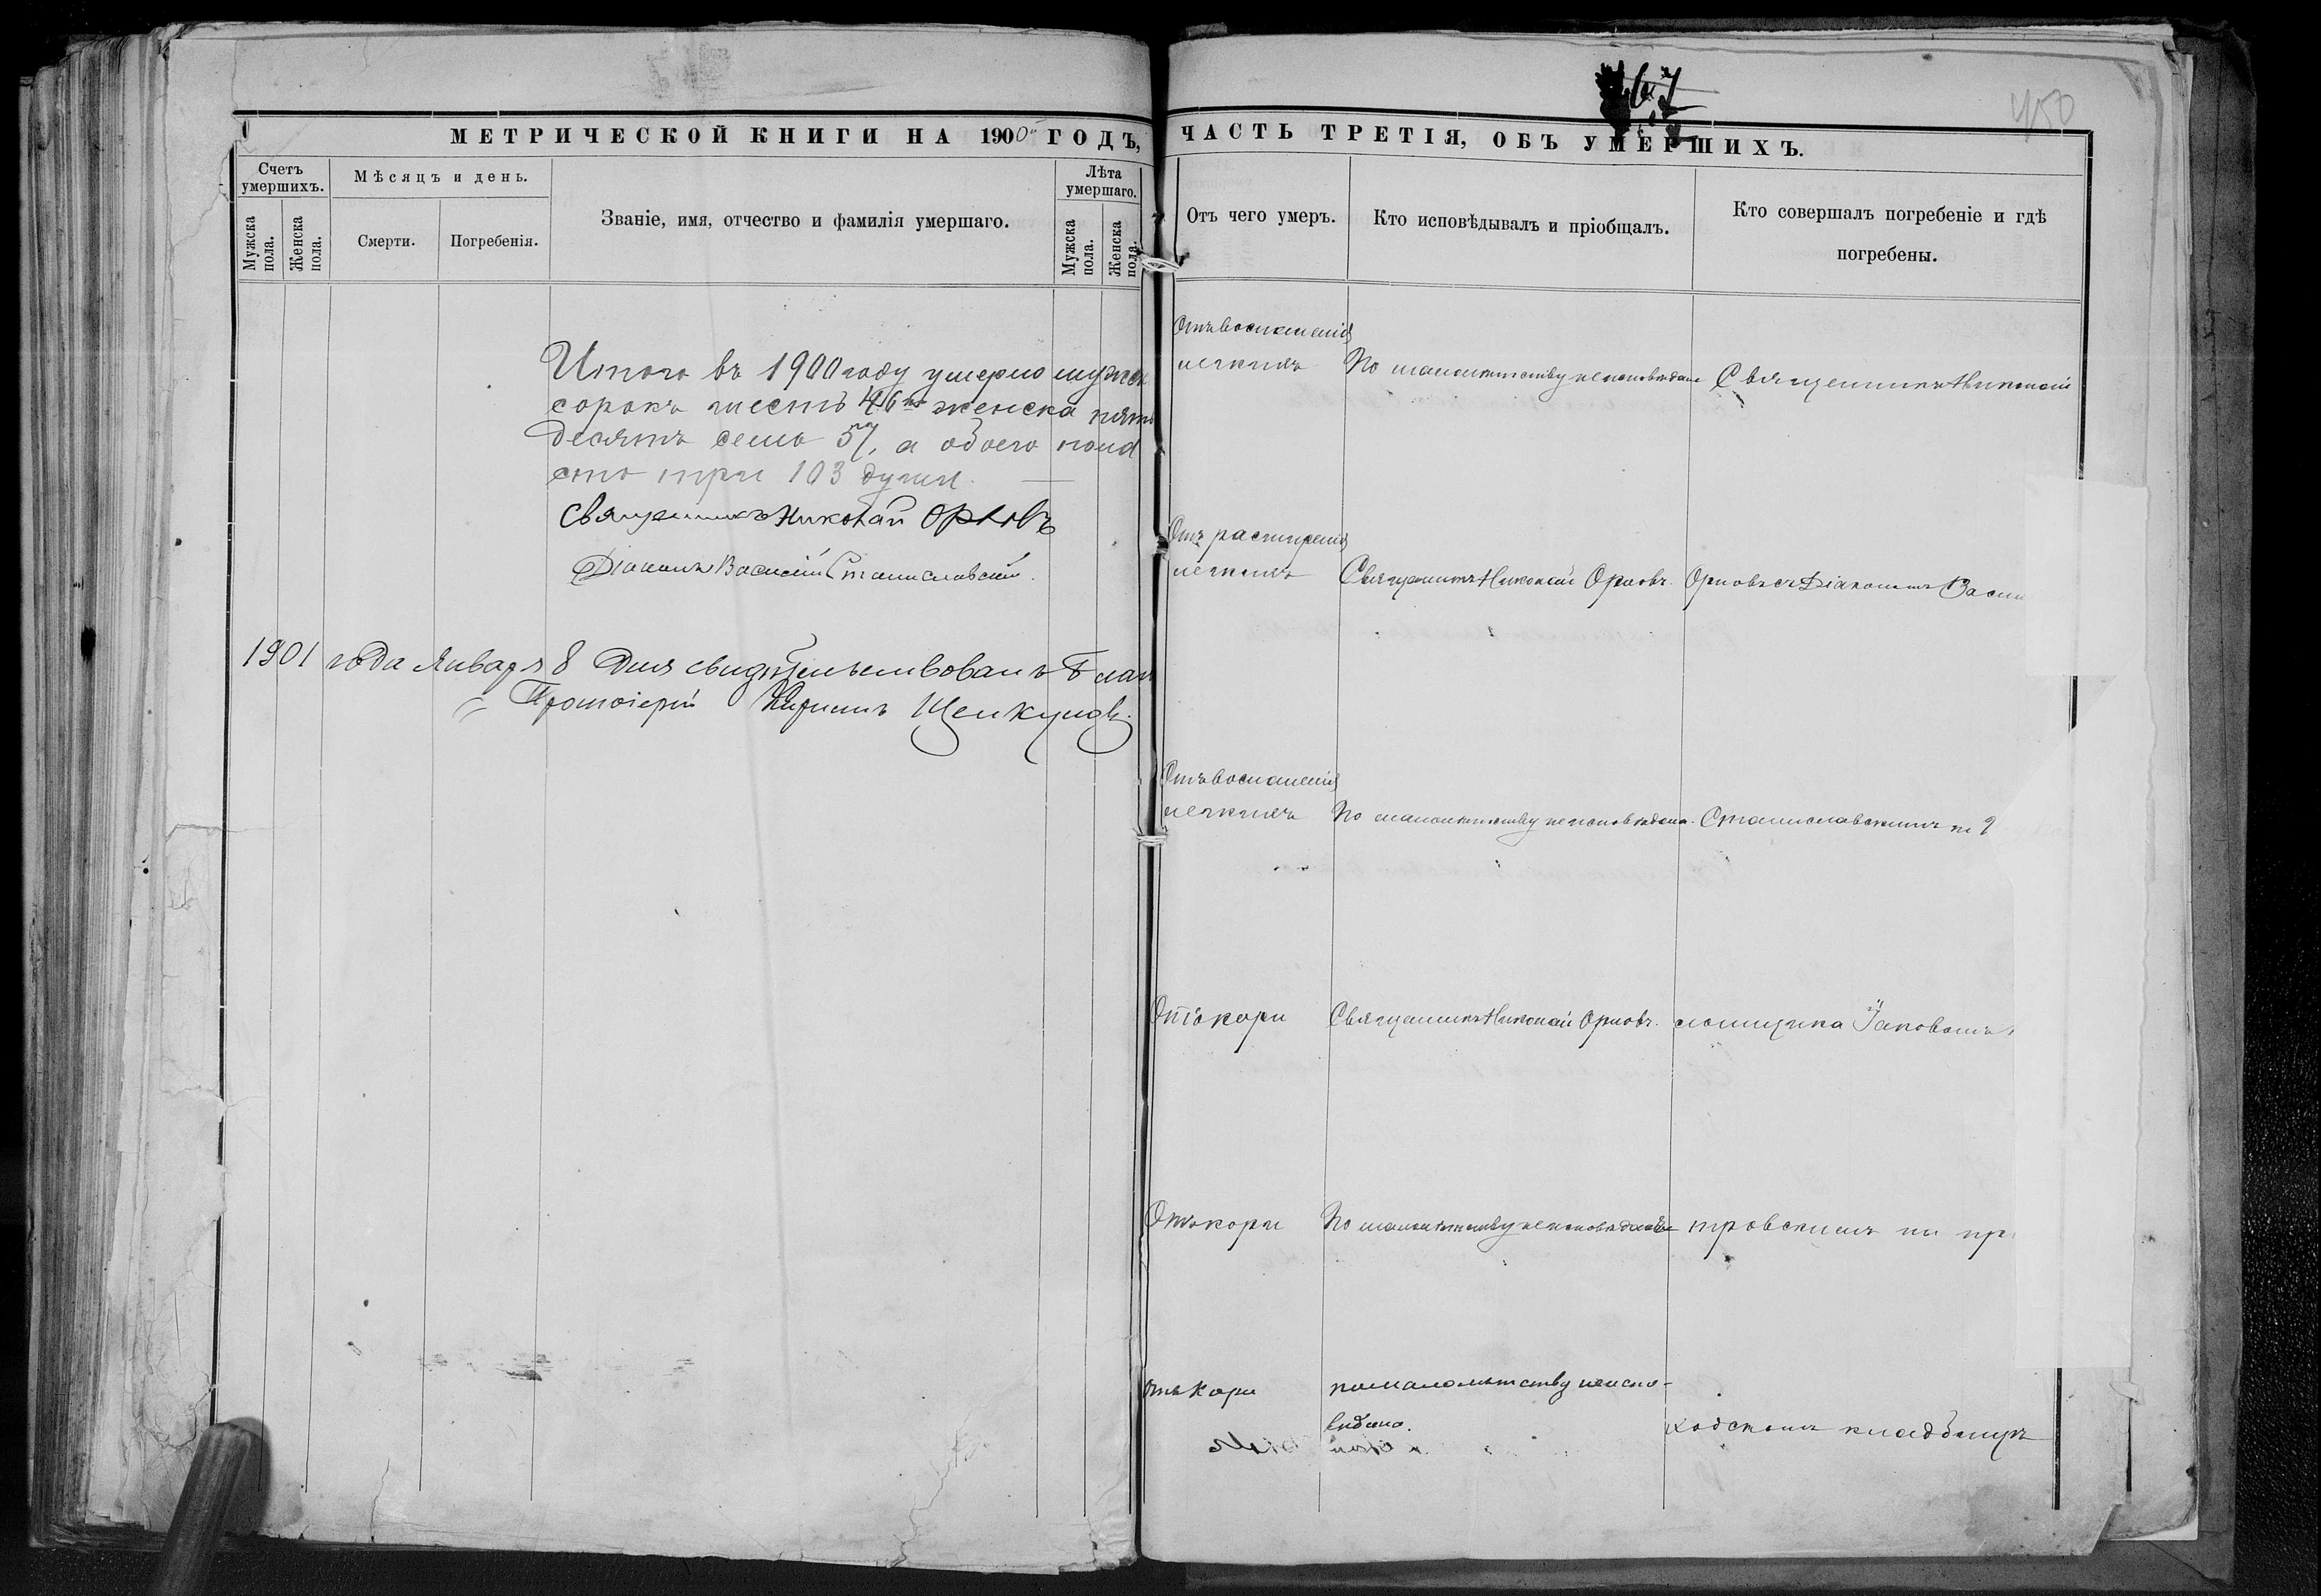 МЕТРИЧЕСКОЙ КНИГИ НА 1900 ГОДЪ,
Счетъ умершихъ.
Мѣсяцъ и день.
Званіе, имя, отчество и фамилія умершаго.
Лѣта умершаго.
Мужска пола.
Женска пола.
Смерти.
Погребенія.
Мужска пола.
Женска пола.
Итого въ 1900 году умерло мужск
сорокъ шесть 46 женска пять
десятъ семь 57, а обоего пола
сто три 103 души.
Священникъ Николай Орловъ
Діаконъ Василій Станиславскій.
1901 года Января 8 дня свидѣтельствовалъ Благ
Протоіерей Кириллъ Щелкуновъ.
450
ЧАСТЬ ТРЕТІЯ, ОБЪ УМЕРШИХЪ.
Отъ чего умеръ.
Кто исповѣдывалъ и пріобщалъ.
Кто совершалъ погребеніе и гдѣ
погребены.
Отъ воспаленія
легкихъ По малолѣтству не исповѣдана Священникъ Николай
Отъ расширенія
легкихъ Священникъ Николай Орловъ. Орловъ съ Діакономъ Васи
Отъ воспаленія
легкихъ По малолѣтству не исповѣдана. Станиславскимъ и
Отъ кори Священникъ Николай Орловъ. ломщика Іаковомъ
Отъ кори По малолѣтству не исповѣданъ тровскимъ на пр
Отъ кори по малолѣтству неиспо-
вѣдана.
ходскомъ кладбищѣ